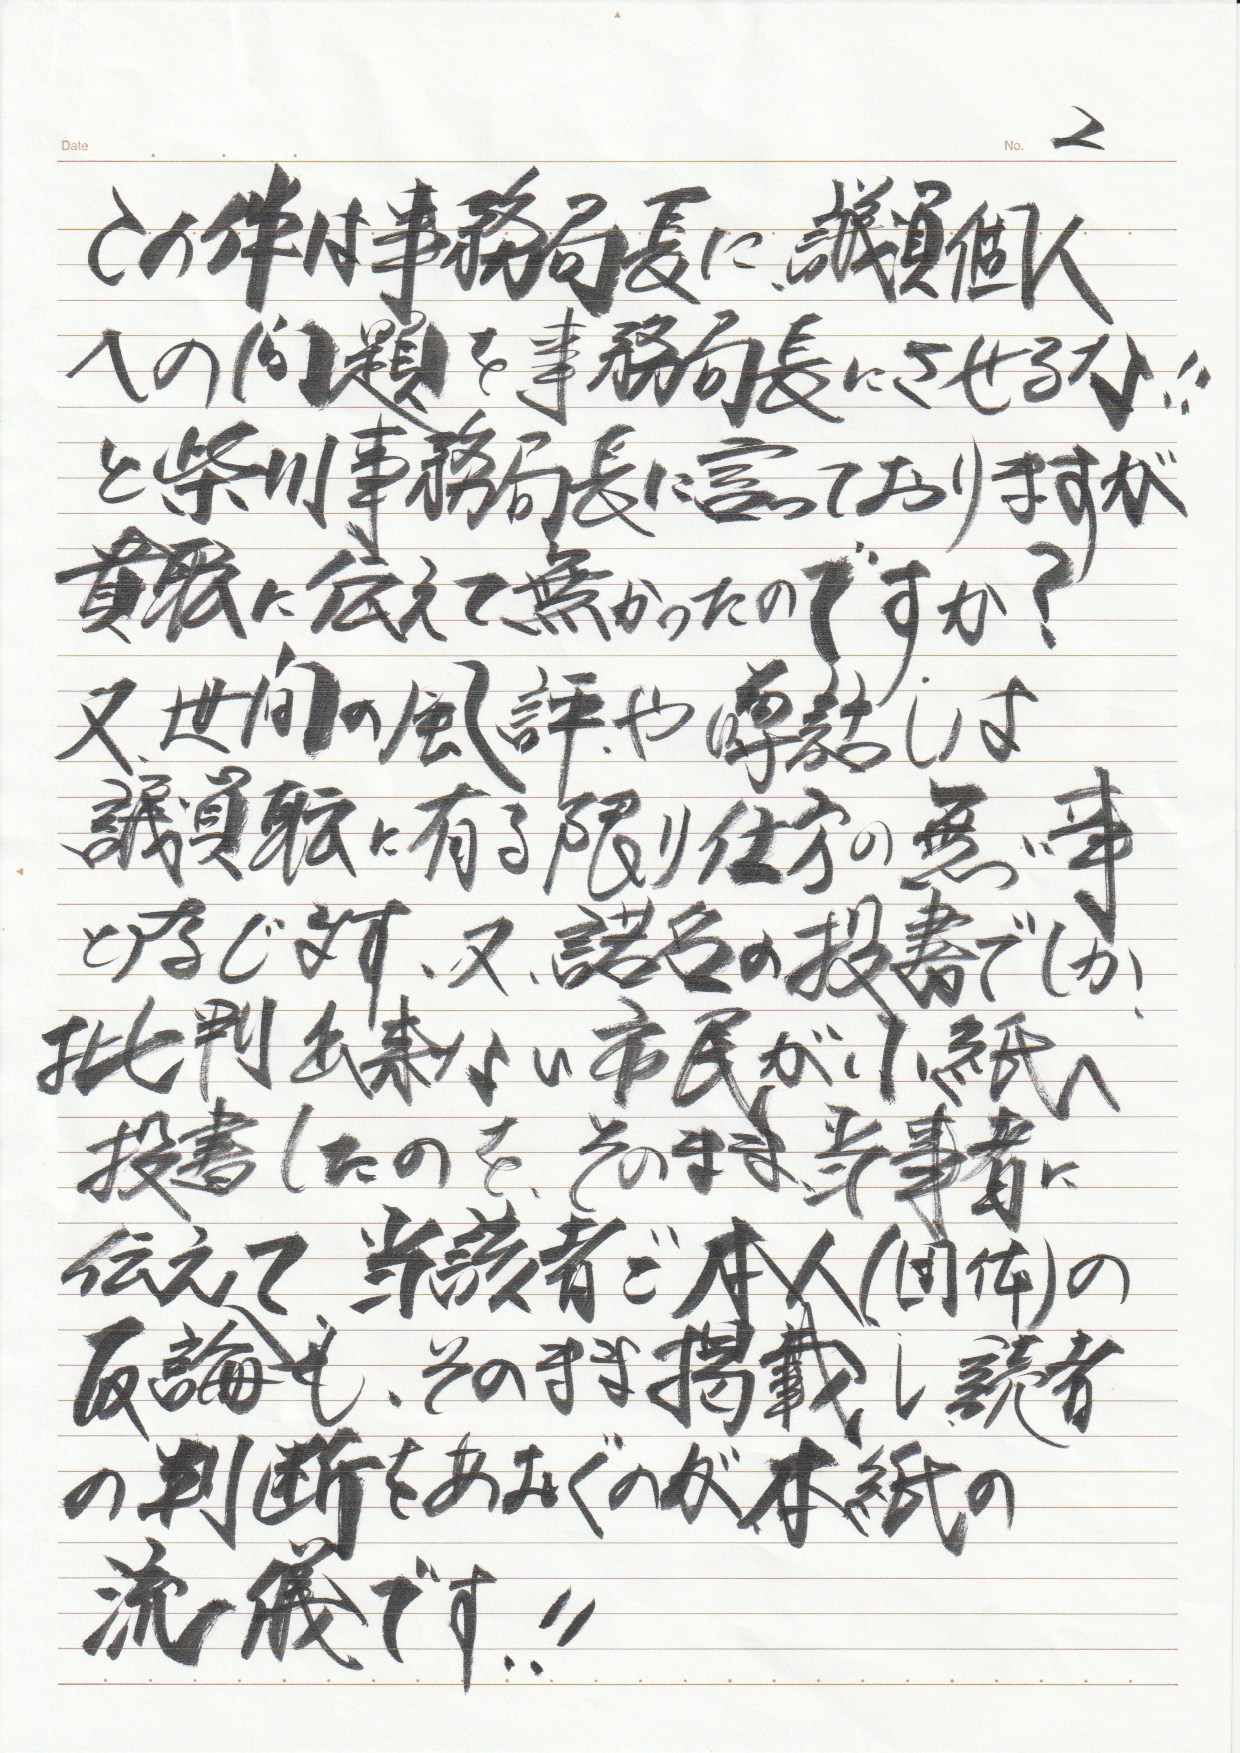 Date
No. 2
この件は事務局長に、議員個人
への問題を事務局長にさせるな!!
と柴川事務局長に言っておりますが
貴職に伝えて無かったのですか?
又、世間の風評、や噂話しは
議員職に有る限り仕方の無い事
と存じます、又、諾名の投書でしか、
批判出来ない市民が小紙へ
投書したのを、そのまま、当事者に
伝えて 当該者ご本人(団体)の
反論も、そのまま掲載し読者
の判断をあおぐのが本紙の
流儀です!!